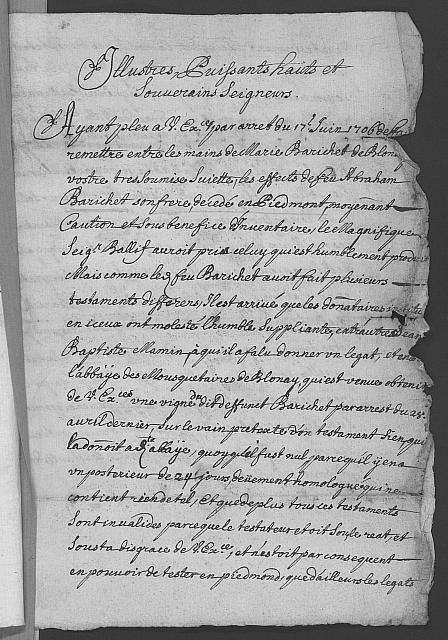 Illustres, Puissants hauts et
Souverains Seigneurs.
Ayant pleu a V. Exces par arret du 17e Juin 1706 de
remettre entre les mains de Marie Barichet de Blonay
vostre tres soumise Sujette, les effects de feu Abraham
Barichet son frere, decedé en Piedmont, moyenant
Caution et sous benefice d'Inventaire, le Magnifique
Seigr Ballif auroit pris celuy qui est humblement produit
Mais comme le feu Barichet avoit fait plusieurs
testaments differens, il est arrivé que les donataires
en iceux ont molesté l'humble suppliante, entr'autres Jean
Baptiste Mamin à qui il a falu donner un legat, et
l'abbaÿe des Mousquetaires de Blonay, qui est venue obtenir
de V. Exces une vigne dudit deffunct Barichet par arrest du 24e
avril dernier, sur le vain pretexte d'un testament d'en qui
la donoit a dte abbaÿe, quoy qu'il fust nul parce qu'il y en a
un posterieur de 24 jours, deüement homologué qui ne
contient rien de tel, Et que de plus tous ces testaments
sont invalides parce que le testateur etoit seule reat, et
sous ta disgrace de V. Exce, et n'estoit par consequent
en pouvoir de tester en piedmond, que d'ailleurs les legats